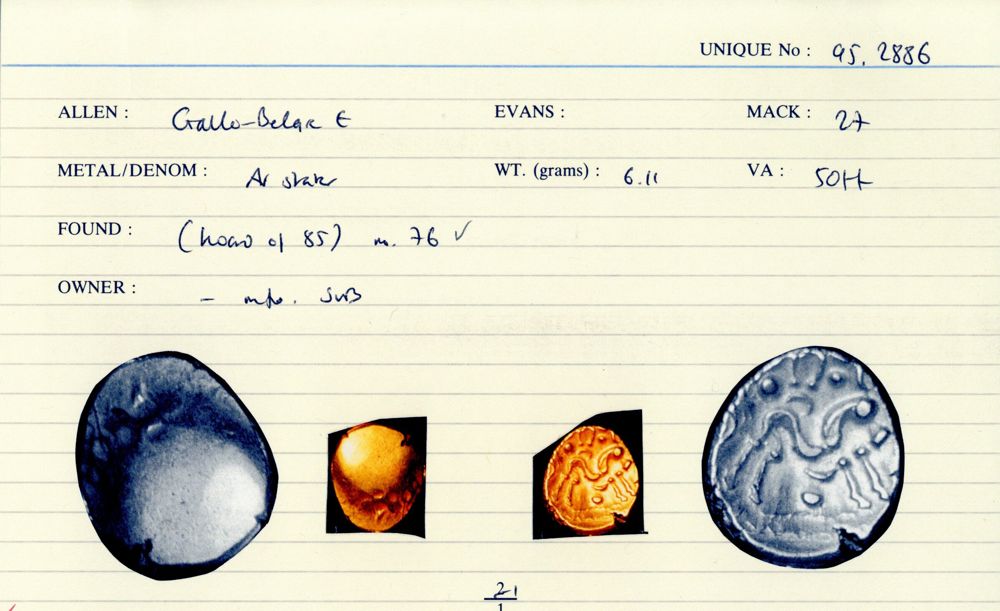 UNIQUE No : 95.2886
ALLEN : Gallo-Belgic E EVANS : MACK : 27
METAL/DENOM : AV stater WT. (grams) : 6.11 VA :
FOUND : (hoard of 85) no. 76 ✓
OWNER : – info. SWB
21
1